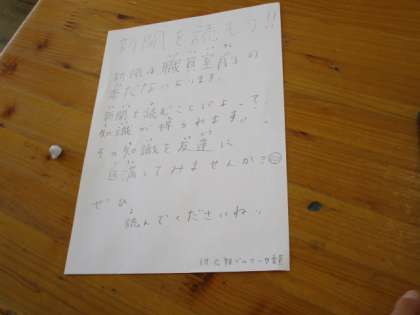 新聞を読もう!!
新聞は職員室前の
本だなにあります。
新聞を読むことによって!
知識が得られます。
その知識を友達に
してみませんか?
ぜひ
読んでくださいね!